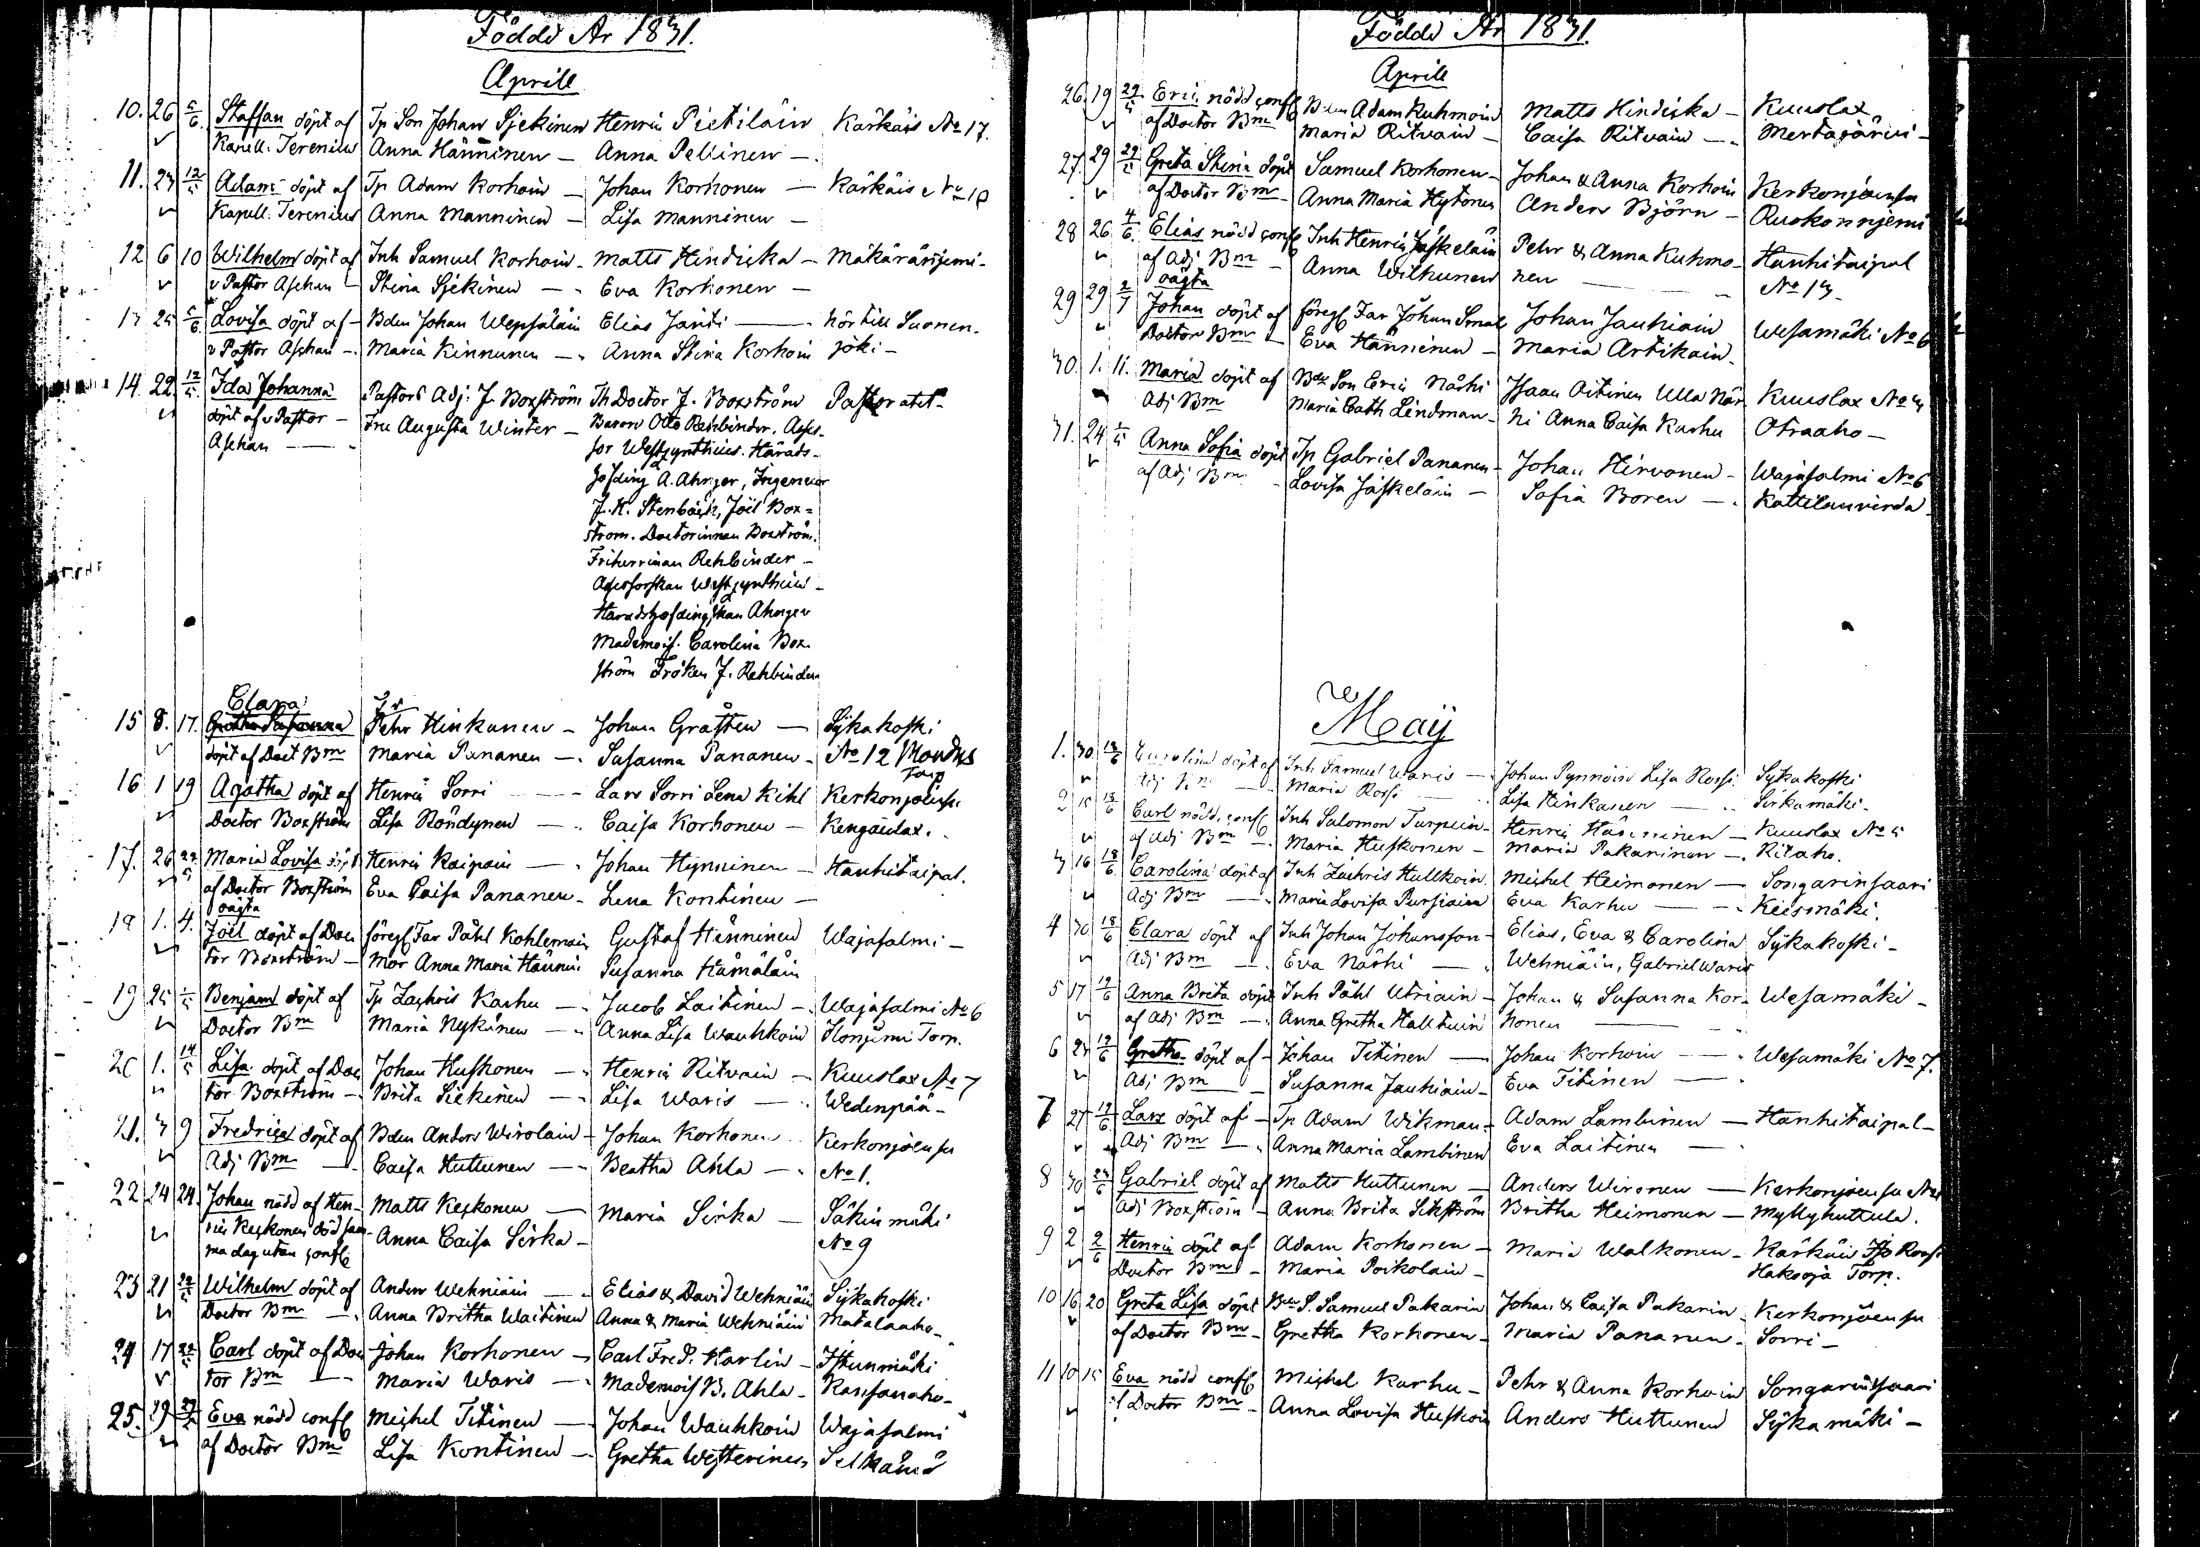 Föddo År 1831.
Aprill
10. 26 5/6 Staffan döpt af Tp Son Johan Sjekinen Henric Pietiläin Kärkäis No 17.
Kapell. Terenius Anna Hänninen — Anna Pellinen —
11. 23 12/5 Adam döpt af Tp Adam Korhoin — Johan Korhonen — Kärkäis No 18
Kapell. Terenius Anna Manninen — Lisa Manninen —
12 6 10 Wilhelm döpt af Inh Samuel Korhoin — Matts Hindicka — Makärärijemi —
v Pastor Aschan — Stina Sjekinen — Eva Korhonen —
13 25 5/6 Lovisa döpt af — Bden Johan Wepsäläin Elias Jänti — hör till Suonen-
v Pastor Aschan — Maria Kinnunen — Anna Stina Korhoin joki —
14 22 12/5 Ida Johanna Pastors Adj: J. Boxström Th Doctor J. Boxström Pastoratet —
döpt af v Pastor — Fru Augusta Winter — Baron Otto Rehbinder, Asses-
Aschan — sor Westzynthius. Härads-
höfding A. Ahnger, Ingenieur
J. K. Stenbäck, Joel Box=
ström. Doctorinnan Boxström.
Friherrinnan Rehbinder —
Assessorskan Westzynthius —
Häradshöfdingskan Ahnger
Mademois. Carolina Box-
ström Fröken J. Rehbinder
Clara
15 8. 17. Pehr Hinkanen — Johan Gråsten — Sÿkakoski
döpt af Doct Bm Maria Pananen — Susanna Pananen — No 12
16 1 19 Agatha döpt af Henric Sorri — Lars Sorri Lena Kihl Kerkonjoensu
Doctor Boxström Lisa Röndynen — Caisa Korhonen — Kengäulax.
17. 26 22/5 Maria Lovisa döpt Henric Kaipain — Johan Hynninen — Hanhitaipal.
af Doctor Boxström Eva Caisa Pananen — Lena Kontinen —
oägta
18 1. 4. Joel döpt af Doc föregf Far Påhl Kohlemain Gustaf Hänninen Wajasalmi —
tor Boxström — Mor Anna Maria Hännin Susanna Hämäläin
19 25 Benjam döpt af Tp Zachris Karhu — Jacob Laitinen — Wajasalmi No 6
Doctor Bm Maria Nykänen — Anna Lisa Wauhkoin Honjemi Torp.
20 1. 14/5 Lisa döpt af Doc Johan Huskonen — Henric Ritvain — Kuuslax No 7
tor Boxström — Brita Siekinen — Lisa Waris — Wedenpää —
21. 3 9 Fredrica döpt af Bden Anders Wirolain — Johan Korhonen Kerkonjoensu
Adj Bm — Caisa Huttunen — Beatha Ahla — No 1.
22 24 24. Johan nödd af Hen- Matts Keskonen — Maria Sirka — Säkinmäki
ric Keskonen död sam- Anna Caisa Sirka — No 9
ma dag utan confl
23 21 22/5 Wilhelm döpt af Anders Wehniäin — Elias & David Wehniäin Sÿkakoski
Doctor Bm — Anna Britha Waitinen Anna & Maria Wehniäin Matalaaho —
24 17 22/5 Carl döpt af Doc Johan Korhonen — Carl Fred. Harlin — Istunmäki
tor Bm — Maria Waris — Mademois B. Ahla — Kansanaho —
25. 19 29/5 Eva nödd confl Michel Titinen — Johan Wauhkoin Wajasalmi
af Doctor Bm Lisa Kontinen — Gretha Westerinen
Föddo År 1831.
Aprill
26 19 29/5 Eric nödd confl Bden Adam Kuhmoin Matts Hindicka — Kuuslax
af Doctor Bm Maria Ritvain — Caisa Ritvain — Mertajärvi —
27. 29 29/5 Greta Stina döpt Samuel Korhonen — Johan & Anna Korhoin Kerkonjoensu
af Doctor Bm — Anna Maria Hytönen Anders Björn — Ruokonnjemi
28 26 4/6 Elias nödd confl Inh Henric Jäskeläin Pehr & Anna Kuhmo- Hanhitaipal
af Adj Bm — Anna Wilhunen nen — No 13.
oägta
29 29 2/7 Johan döpt af föregf Far Johan Smal Johan Jauhiain Wesamäki No 6
Doctor Bm — Eva Hänninen — Maria Artikain.
30. 1. 11. Maria döpt af Bde Son Eric Närhi Isaac Oitinen Ulla När Kuuslax No 3
Adj Bm Maria Cath Lindman — hi Anna Caisa Karhu Otraaho —
31. 24 Anna Sofia döpt Tp Gabriel Pananen — Johan Hirvonen — Wajasalmi No 6
af Adj Bm — Lovisa Jäskeläin — Sofia Boren — Kattilanvirda
Maÿ
1. 30 18/6 Carolina döpt af Inh Samuel Waris — Johan Pynnöin Lisa Rossi Sÿkakoski
Adj Bm — Maria Rossi — Lisa Hinkanen — Sirkamäki.
2 15 18/6 Carl nödd, confl Inh Salomon Turpein — Henric Hänninen — Kuuslax No 5
af Adj Bm — Maria Huskonen — Maria Pakarinen — Ritaho.
3 16 18/6 Carolina döpt af Inh Zachris Hulkoin Michel Heimonen — Songarinsaari
Adj Bm — Maria Lovisa Pursiain Eva Karhu — Keismäki.
4 30 18/6 Clara döpt af Inh Johan Johansson — Elias, Eva & Carolina Sÿkakoski —
Adj Bm — Eva Närhi — Wehniäin, Gabriel Waris
5 17 19/6 Anna Brita döpt Inh Påhl Utriain — Johan & Susanna Kor- Wesamäki —
af Adj Bm — Anna Gretha Halttuin honen —
6 23 19/6 Gretha döpt af — Johan Titinen — Johan Korhoin — Wesamäki No 7.
Adj Bm — Susanna Jauhiain — Eva Titinen —
7 27 19/6 Lars döpt af — Tp Adam Wikman — Adam Lambinen — Hanhitaipal —
Adj Bm — Anna Maria Lambinen Eva Laitinen —
8 30 23/6 Gabriel döpt af Matts Huttunen — Anders Wironen — Kerkonjoensu
Adj Boxström — Anna Brita Sikström Britha Heimonen — Myllyhuttula.
9 2 2/6 Henric döpt af Adam Korhonen — Maria Walkonen — Kärkäis
Doctor Bm — Maria Poikolain — Haksoja Torp.
10 16 20 Greta Lisa döpt Bde S. Samuel Pakarin Johan & Caisa Pakarin Kerkonjoensu
af Doctor Bm — Gretha Korhonen — Maria Pananen — Sorri —
11 10 15 Eva nödd confl Michel Karhu — Pehr & Anna Korhoin Songarinsaari
af Doctor Bm — Anna Lovisa Huskoin Anders Huttunen Sÿkamäki —